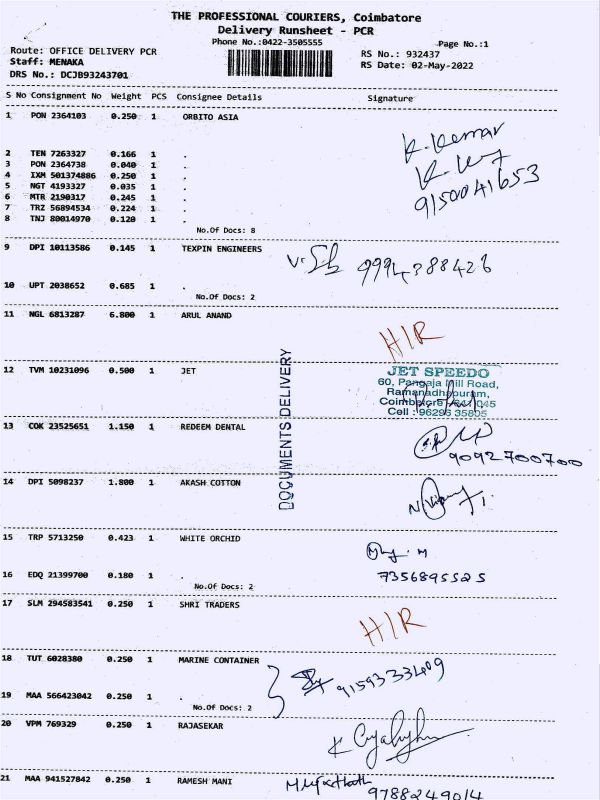 THE PROFESSIONAL COURIERS, Coimbatore
Delivery Runsheet - PCR
Phone No.:0422-3505555
Page No.:1
Route: OFFICE DELIVERY PCR
Staff: MENAKA
DRS No.: DCJB93243701
RS No.: 932437
RS Date: 02-May-2022
S No Consignment No Weight PCS Consignee Details Signature
1 PON 2364103 0.250 1 ORBITO ASIA
K. Kumar
9150041653
2 TEN 7263327 0.166 1 .
3 PON 2364738 0.040 1 .
4 IXM 501374886 0.250 1 .
5 NGT 4193327 0.035 1 .
6 MTR 2190317 0.245 1 .
7 TRZ 56894534 0.224 1 .
8 TNJ 80014970 0.120 1 .
No.Of Docs: 8
9 DPI 10113586 0.145 1 TEXPIN ENGINEERS
9994388426
10 UPT 2038652 0.685 1 .
No.Of Docs: 2
11 NGL 6813287 6.800 1 ARUL ANAND
H/R
12 TVM 10231096 0.500 1 JET
JET SPEEDO
60, Pangaja Mill Road,
Ramanadhapuram,
Coimbatore - 641 045
Cell : 96296 35805
DOCUMENTS DELIVERY
13 COK 23525651 1.150 1 REDEEM DENTAL
9092700700
14 DPI 5098237 1.800 1 AKASH COTTON
15 TRP 5713250 0.423 1 WHITE ORCHID
16 EDQ 21399700 0.180 1 .
7356895525
No.Of Docs: 2
17 SLM 294583541 0.250 1 SHRI TRADERS
H/R
18 TUT 6028380 0.250 1 MARINE CONTAINER
9159333409
19 MAA 566423042 0.250 1 .
No.Of Docs: 2
20 VPM 769329 0.250 1 RAJASEKAR
21 MAA 941527842 0.250 1 RAMESH MANI
9788249014